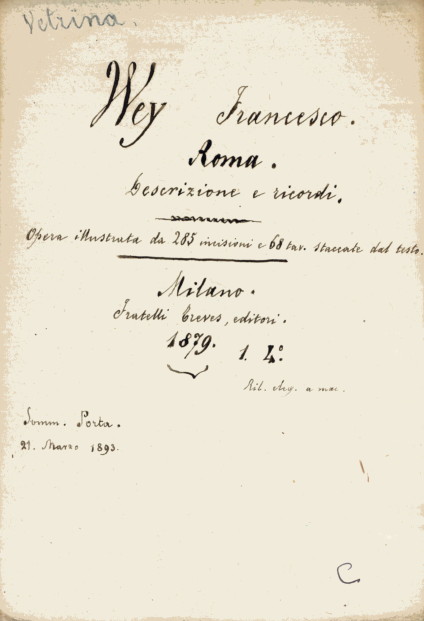 Vetrina.
Wey Francesco.
Roma.
Descrizione e ricordi.
Opera illustrata da 285 incisioni e 68 tav. staccate dal testo.
Milano.
Fratelli Treves, editori.
1879. 1. 4°.
Ril. eleg. a mac.
Somm. Porta.
21. Marzo 1893.
C